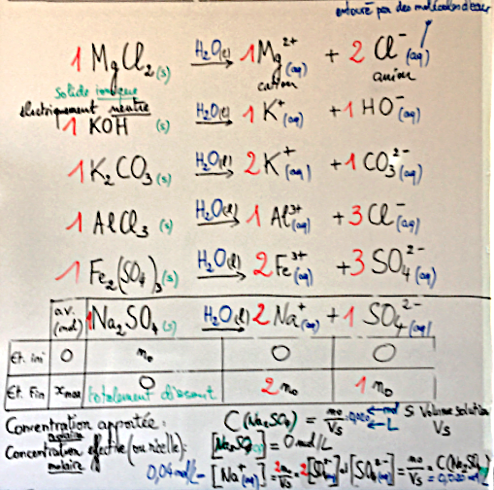 entouré par des molécules d'eau
1 MgCl₂(s) H₂O(l) 1 Mg²⁺(aq) + 2 Cl⁻(aq)
solide ionique cation anion
électriquement neutre
1 KOH (s) H₂O(l) 1 K⁺(aq) + 1 HO⁻(aq)
1 K₂CO₃(s) H₂O(l) 2 K⁺(aq) + 1 CO₃²⁻(aq)
1 AlCl₃ (s) H₂O(l) 1 Al³⁺(aq) + 3 Cl⁻(aq)
1 Fe₂(SO₄)₃(s) H₂O(l) 2 Fe³⁺(aq) + 3 SO₄²⁻(aq)
a.v. (mol) 1 Na₂SO₄(s) H₂O(l) 2 Na⁺(aq) + 1 SO₄²⁻(aq)
Et. ini 0 n₀ 0 0
Et. Fin xmax 0 totalement dissout 2 n₀ 1 n₀
Concentration apportée: C(Na₂SO₄) = n₀/Vs mol L S Volume solution Vs
molaire
Concentration effective (ou réelle): [Na₂SO₄] = 0 mol/L
molaire
0,04 mol/L [Na⁺(aq)] = 2n₀/Vs [SO₄²⁻(aq)] = n₀/Vs = C(Na₂SO₄)